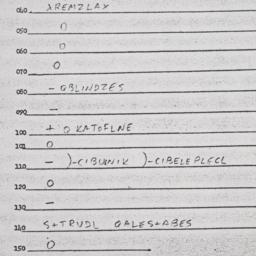 040. XREMZLAX
050. O
060 O
070 O
080. - OBLINDZES
090. -
100 + O KATOFLNE
101 O
110 - )-CIBULNIK )-CIBELEPLECL
120 O
130 -
140 S+TRUDL OALES+ABES
150 O